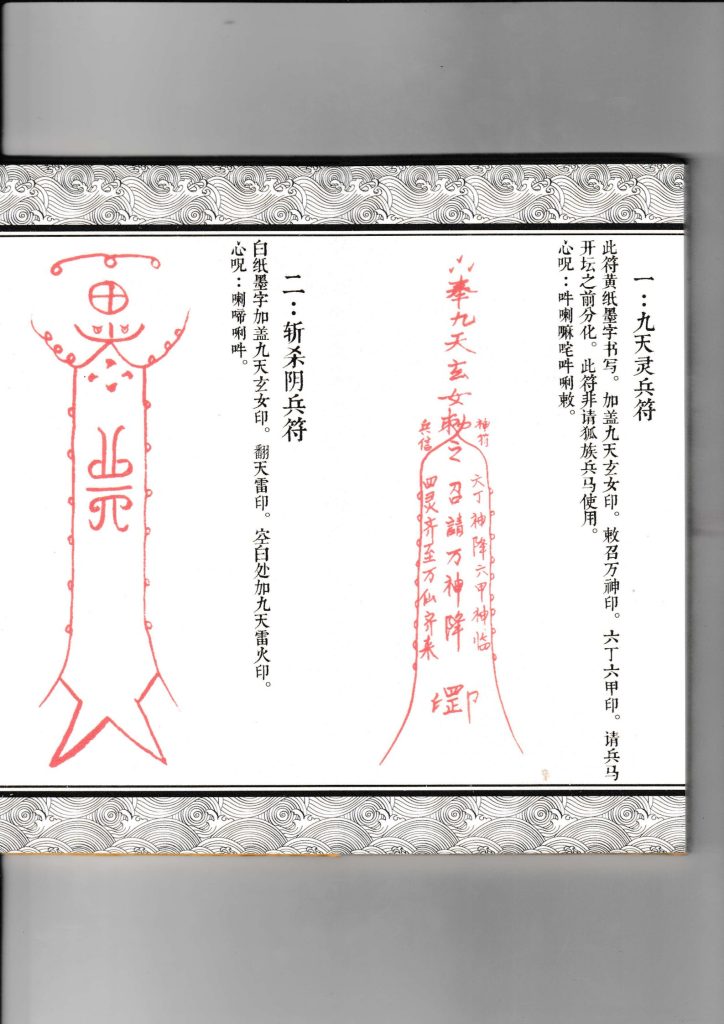 一：九天灵兵符
此符黄纸墨字书写。加盖九天玄女印。敕召万神印。六丁六甲印。请兵马
开坛之前分化。此符非请狐族兵马使用。
心呪：吽喇嘛咤吽唎敕。
奉九天玄女勅之
神符
兵信
六丁神降六甲神临
召請万神降
四灵齐至万仙齐来
二：斩杀阴兵符
白纸墨字加盖九天玄女印。翻天雷印。空白处加九天雷火印。
心呪：喇啼唎吽。